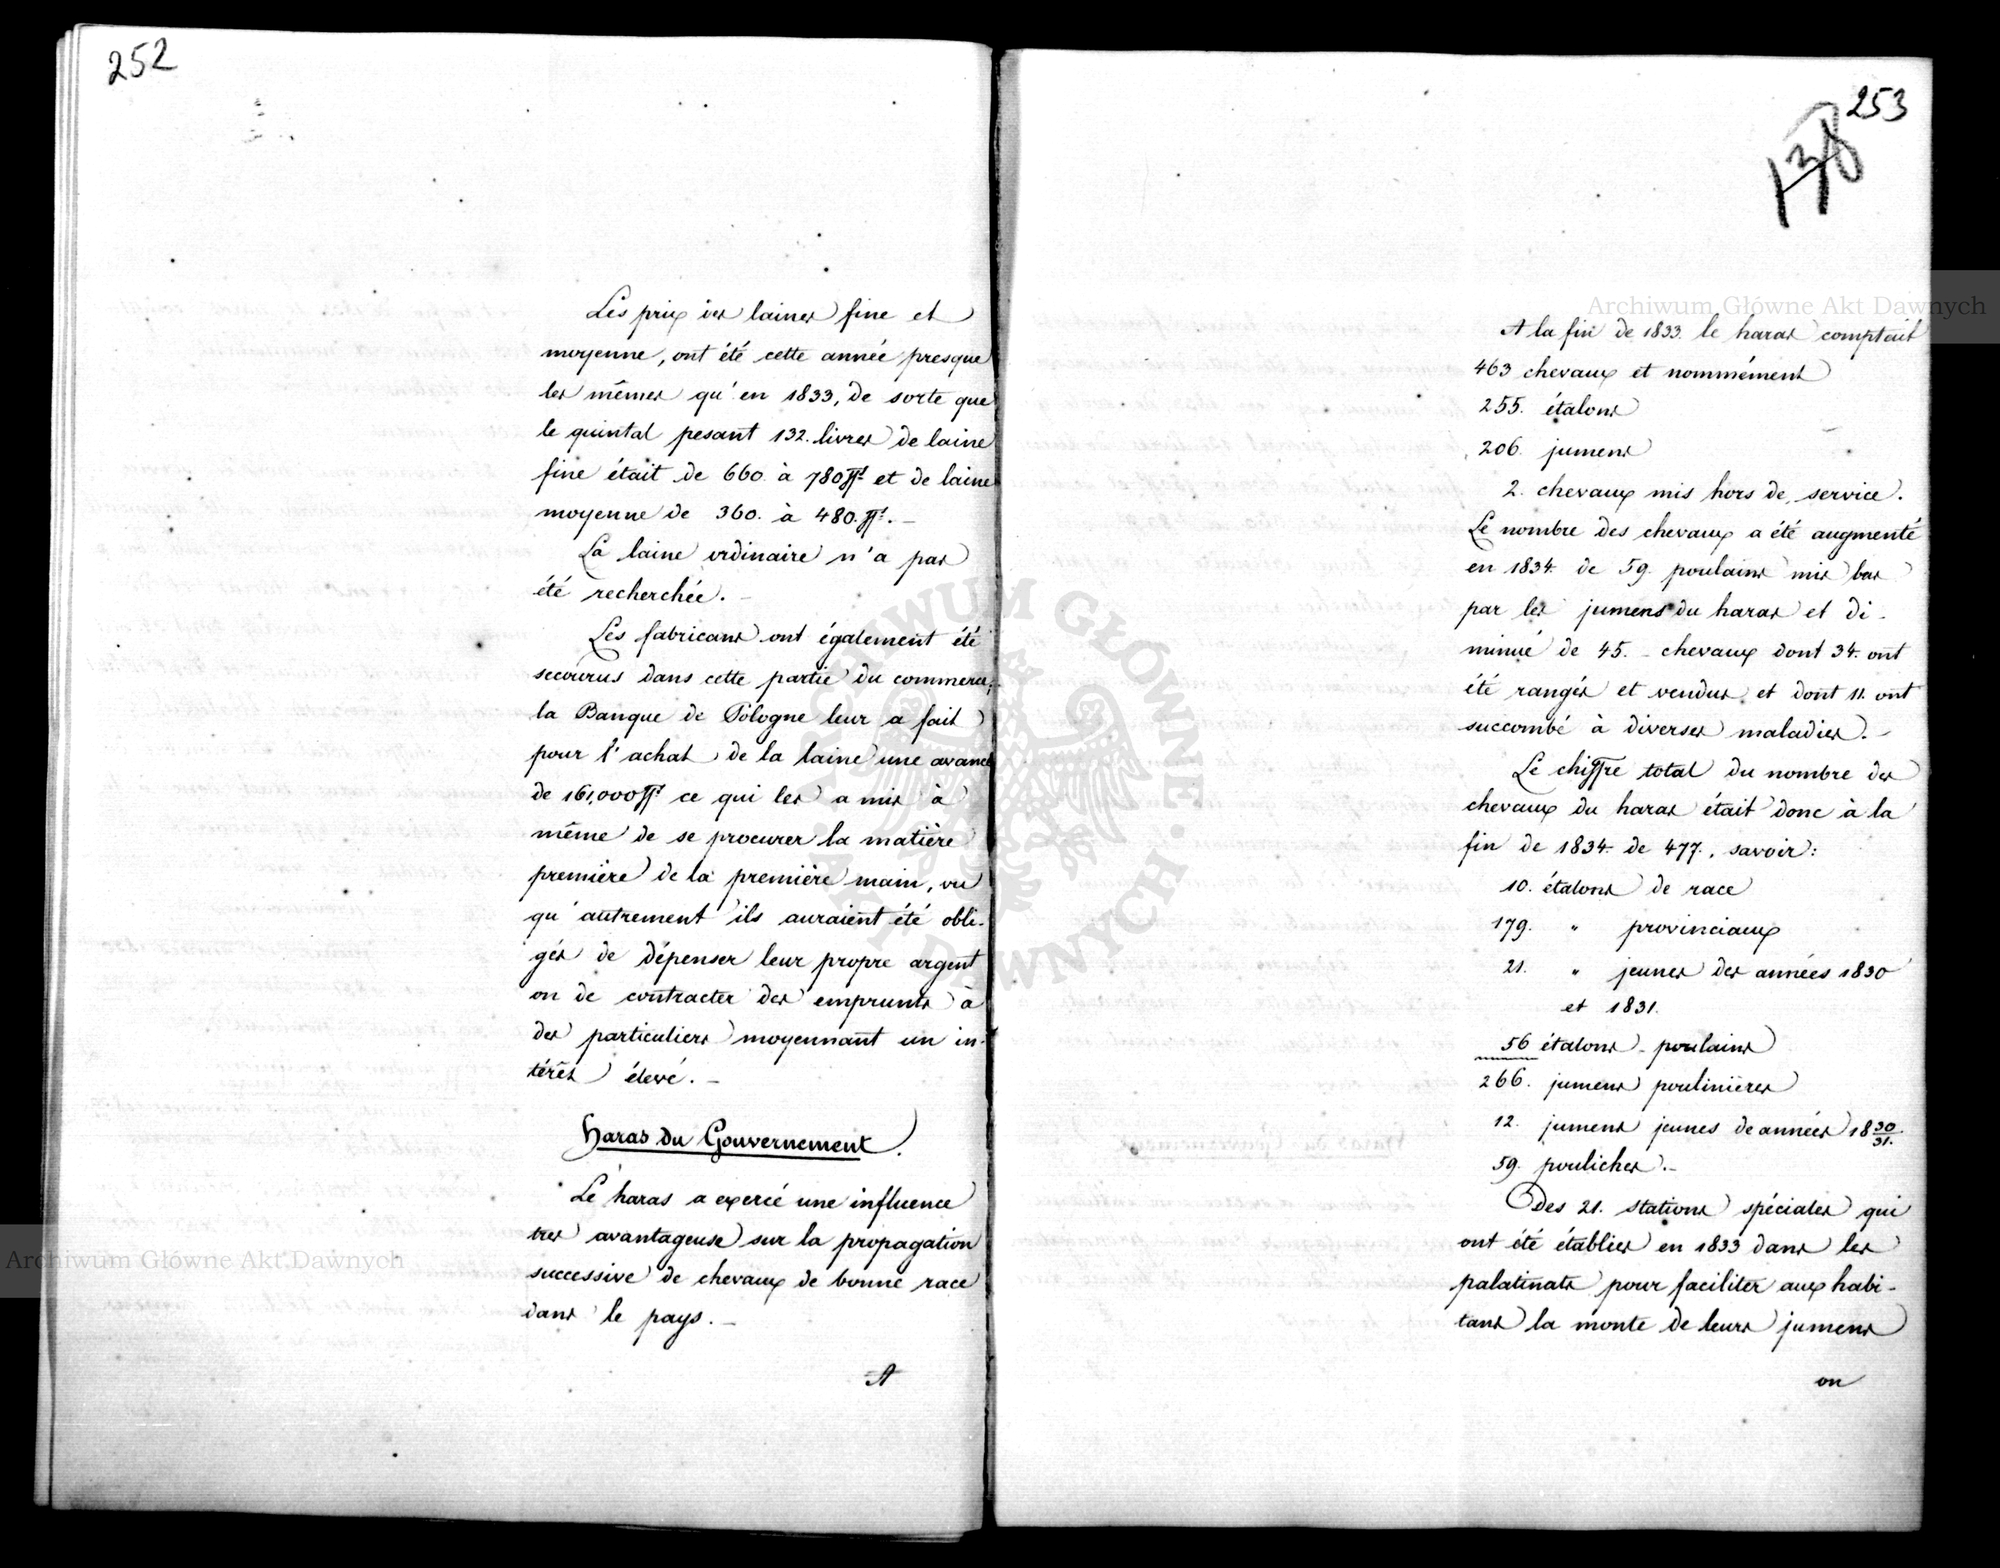 252
Les prix des laines fine et
moyenne, ont été cette année presque
les mêmes qu'en 1833, de sorte que
le quintal pesant 132. livres de laine
fine était de 660. à 780 ff. et de laine
moyenne de 360. à 480. ff. –
La laine ordinaire n'a pas
été recherchée. –
Les fabricans ont également été
secourus dans cette partie du commerce;
la Banque de Pologne leur a fait
pour l'achat de la laine une avance
de 161,000 ff. ce qui les a mis à
même de se procurer la matière
première de la première main, vu
qu'autrement ils auraient été obli-
gés de dépenser leur propre argent
ou de contracter des emprunts à
des particuliers moyennant un in-
térêt élevé. –
Haras du Gouvernement.
Le haras a exercé une influence
très avantageuse sur la propagation
successive de chevaux de bonne race
dans le pays. –
A
253
138
A la fin de 1833. le haras comptait
463 chevaux et nommément
255. étalons
206. jumens
2. chevaux mis hors de service.
Le nombre des chevaux a été augmenté
en 1834. de 59. poulains mis bas
par les jumens du haras et di-
minué de 45. – chevaux dont 34. ont
été rangés et vendus, et dont 11. ont
succombé à diverses maladies. –
Le chiffre total du nombre des
chevaux du haras était donc à la
fin de 1834. de 477., savoir:
10. étalons de race
179. " provinciaux
21. " jeunes des années 1830
et 1831.
56 étalons – poulains
266. jumens poulinières
12. jumens jeunes de années 18 30/31.
59. pouliches. –
Des 21. stations spéciales qui
ont été établies en 1833 dans les
palatinats pour faciliter aux habi-
tans la monte de leurs jumens
on
Archiwum Główne Akt Dawnych
Archiwum Główne Akt Dawnych
ARCHIWUM GŁÓWNE AKT DAWNYCH